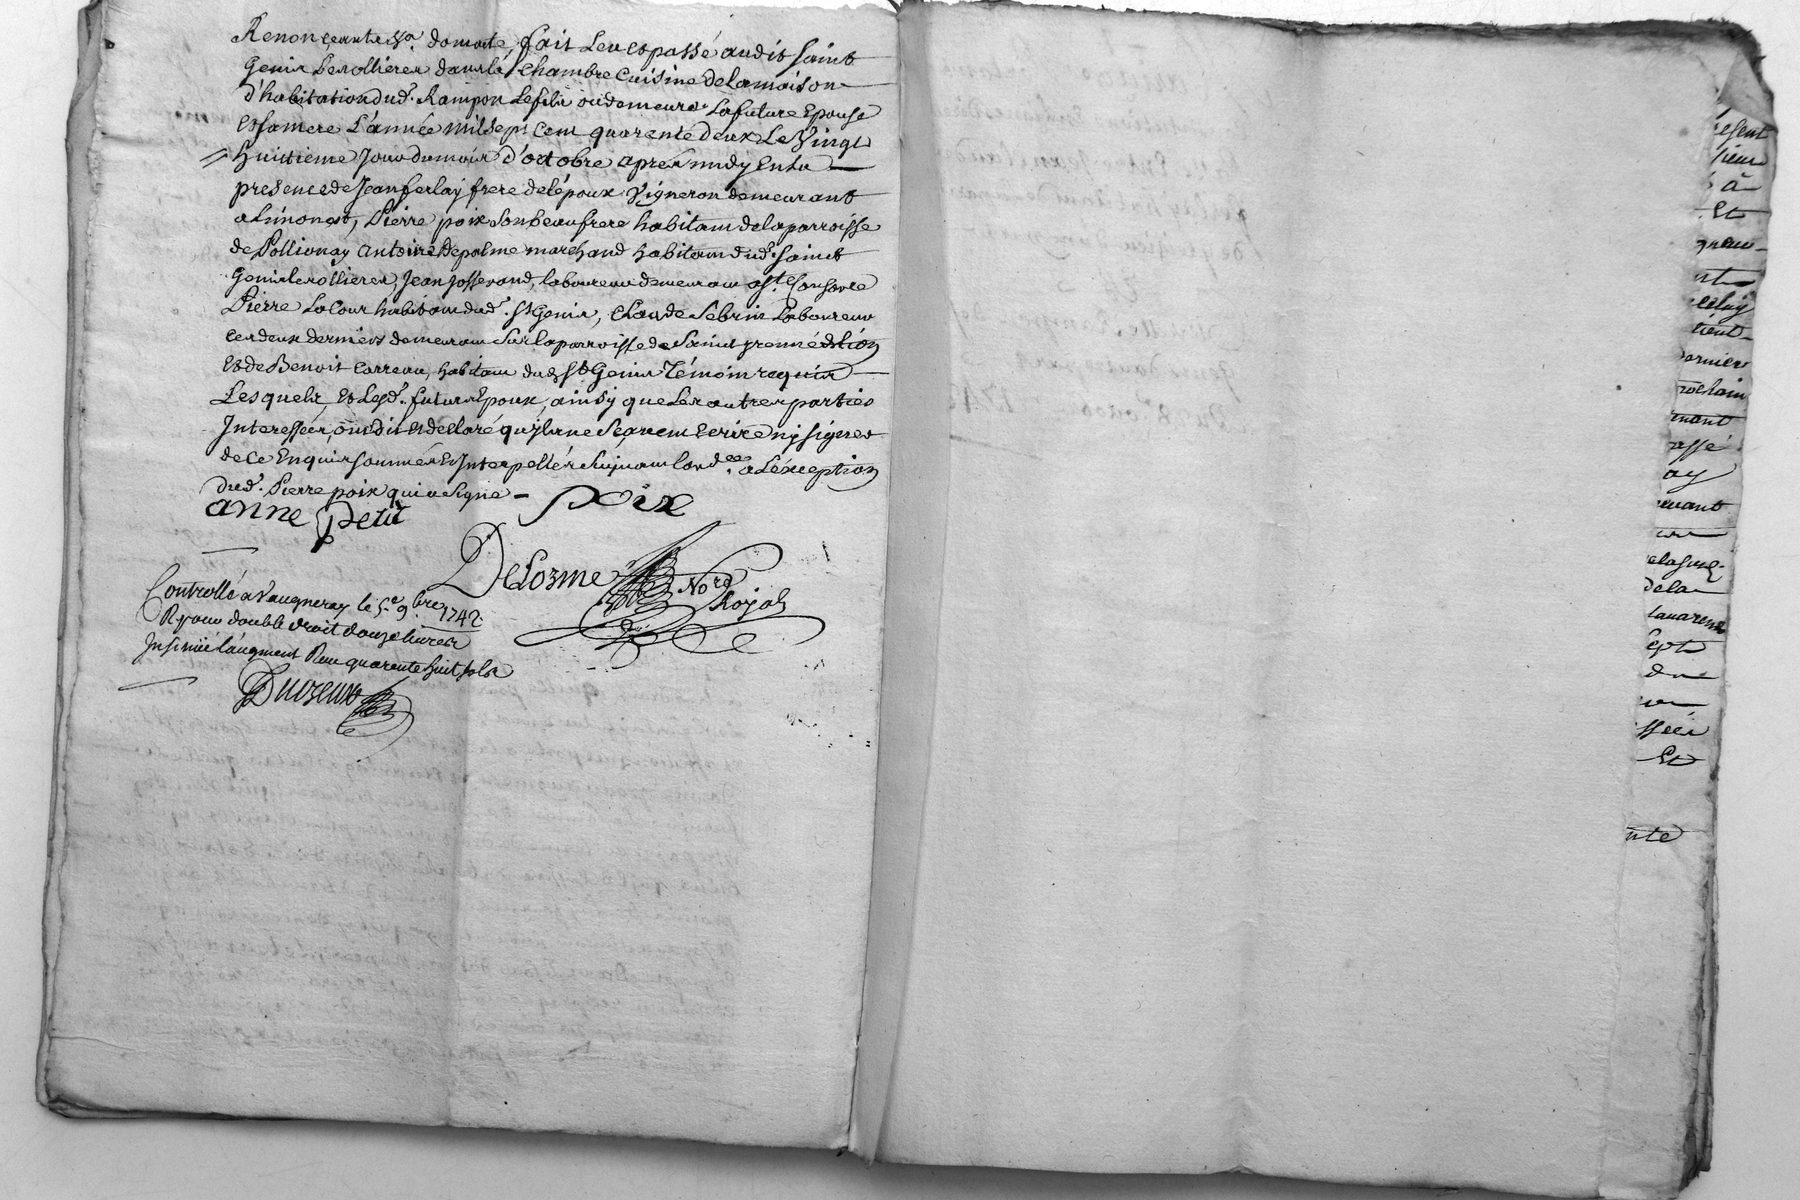 Renonçeante &a. dont acte, fait Leu et passé audit saint
Genis Lesollieres dans la Chambre Cuisine de la maison
d'habitation dud. Rampon Le fils ou demeure La future Epouse
et sa mere L'année mil sept cent quarente deux Le vingt
huitieme Jour du mois d'octobre aprés midy En la
presence de Jean ferlay frere de lépoux Vigneron demeurant
a Limonest, Pierre poix son beaufrere habitant de la parroisse
de Pollionay Antoine Depalme marchand habitant dud. saint
Genis lesollieres, Jean Josserand, laboureur demeurant a st. Consorce
Pierre La Cour habitant dud. St Genis, Claude Sebrin Laboureur
ces deux derniers demeurant sur la parroisse de Saint
Et de Benoit Carreau, habitant dud St Genis Témoin requis
Lesquels, Et Lesd. futurs Epoux, ainsy que Les autres parties
Interessées, ont dit et declaré qu'ils ne sçavent Ecrire ny signer
de ce Enquis sommés Et Interpellés suivant l'ord.ce a L'exception
dud. Pierre poix qui a signe - poix
anne petit
Delorme No.re Royal
Controllé a Vaugneray le 5.e 9bre 1742.
R pour double droit douze livres
Insinué l'augment Reçu quarente huit sols
resent
sieur
à
Et
nt
tient
ochain
nant
assé
ay
uant
dela
epts
du
ssées
Et
nte